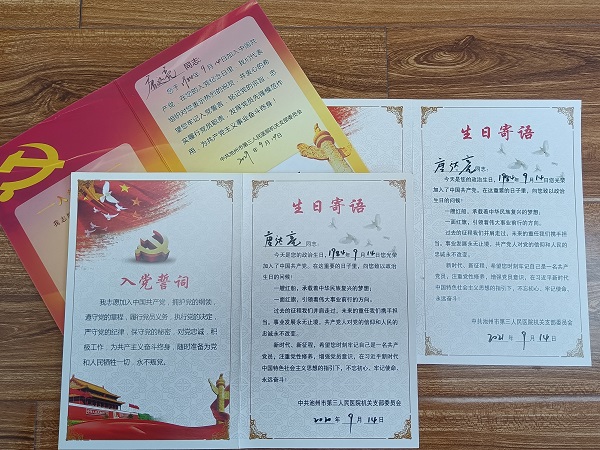 同志:
您于1984年9月14日加入中国共
产党,在您的入党纪念日里,我们代表
组织对您表示热烈的祝贺,并衷心的希
望您牢记入党誓言,铭记党的宗旨,忠
实履行党员职责,发挥党员先锋模范作
用,为共产主义事业奋斗终身!
中共池州市第三人民医院机关支部委员会
2019年9月14日
生日寄语
同志:
今天是您的政治生日,1984年9月14日您光荣
加入了中国共产党。在这重要的日子里,向您致以政治
生日的问候!
一艘红船,承载着中华民族复兴的梦想;
一面红旗,引领着伟大事业前行的方向。
过去的征程我们并肩走过,未来的重任我们携手担
当。事业发展永无止境,共产党人对党的信仰和人民的
忠诚永不改变。
新时代、新征程,希望您时刻牢记自己是一名共产
党员,注重党性修养,增强党员意识,在习近平新时代
中国特色社会主义思想的指引下,不忘初心、牢记使命、
永远奋斗!
中共池州市第三人民医院机关支部委员会
2021年9月14日
入党誓词
我志愿加入中国共产党,拥护党的纲领,
遵守党的章程,履行党员义务,执行党的决定,
严守党的纪律,保守党的秘密,对党忠诚,积
极工作,为共产主义奋斗终身,随时准备为党
和人民牺牲一切,永不叛党。
生日寄语
同志:
今天是您的政治生日,1984年9月14日您光荣
加入了中国共产党。在这重要的日子里,向您致以政治
生日的问候!
一艘红船,承载着中华民族复兴的梦想;
一面红旗,引领着伟大事业前行的方向。
过去的征程我们并肩走过,未来的重任我们携手担
当。事业发展永无止境,共产党人对党的信仰和人民的
忠诚永不改变。
新时代、新征程,希望您时刻牢记自己是一名共产
党员,注重党性修养,增强党员意识,在习近平新时代
中国特色社会主义思想的指引下,不忘初心、牢记使命、
永远奋斗!
中共池州市第三人民医院机关支部委员会
2020年9月14日